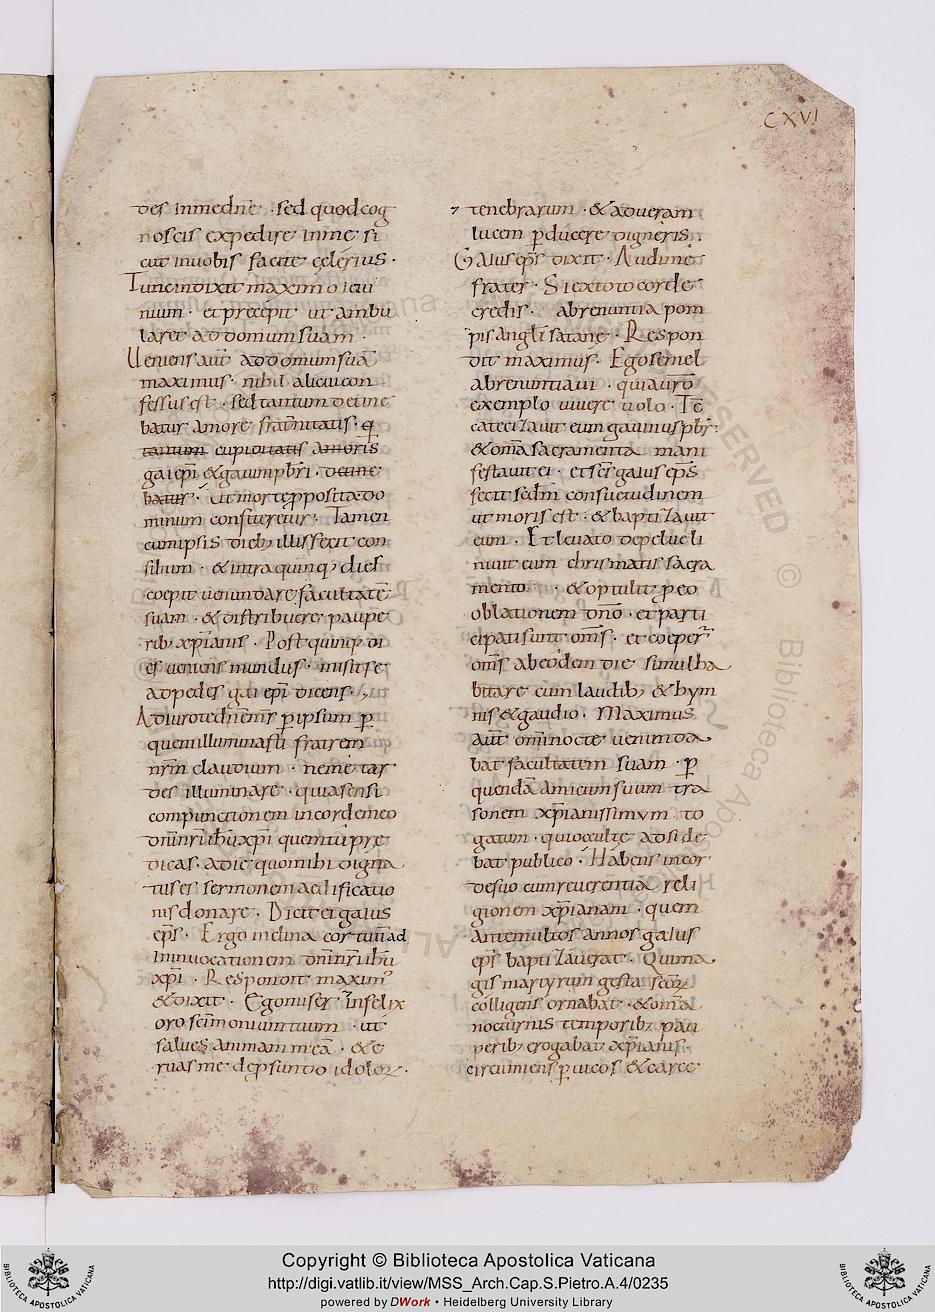 CXVI
des inmedne · sed quod cog
noscis expedire inme si
cut inuobis facite celerius ·
Tuncindixit maximo leui
nium · et precepit ut ambu
laret addomum suam ·
Ueniens aut̄ addomum suā
maximus · nihil alieui con
fessus est · sed tantum detine
batur amore frat̄nitatis · &
tantum cupiditatis amoris
gaiep̄i & gauinip̄br̄i · detine
batur · ut morte p̄posita do
minum confiteretur · Tamen
cumipsis dieb; illis fecit con
silium · & intra quinq; dies
coepit uenundare facultatē
suam · & distribuere paupe
rib; xp̄ianis · Post quinq; di
es ueniens mundus · misit se
adpedes gai ep̄i dicens ·
Adiurote p̄ ipsum p̄
quem illuminasti fratrem
nr̄m claudium · neme tar
des illuminare · quia sensi
compunctionem in corde meo
quem tu pre
dicas · adic quo mihi digna
tus es sermonem aedificatio
nis donare · Dicit ei gaius
ep̄s · Ergo inclina cor tuū ad
inuocationem
xp̄i · Respondit maxim̓
& dixit · Ego miser infelix
oro scīmonium tuum · ut
salues animam meā · & e
ruas me de p̄fundo idoloꝝ ·
tenebrarum · & ad ueram
lucem p̄ducere digneris ·
Gaius ep̄s dixit · Audi me
frater · Si ex toto corde
credis · abrenuntia pom
pis angli satane · Respon
dit maximus · Ego semel
abrenuntiaui · quia ur̄o
exemplo uiuere uolo · Tc̄
catecizauit eum gauinus p̄br̄ ·
& om̄a sacramenta mani
festauit ei · et sc̄s gaius ep̄s
fecit scdm̄ consuetudinem
ut moris est · & baptizauit
eum · Et leuato de pelue li
niuit eum chrismatis sacra
mento · & optulit p eo
oblationem dn̄o · et parti
cipati sunt om̄s · et coeper̄
om̄s ab eodem die simul ha
bitare cum laudib; & hym
nis & gaudio · Maximus
aut̄ om̄i nocte uenunda
bat facultatem suam · p̄
quendā amicum suum tra
sonem xp̄ianissimum to
gatum · qui occulte adside
bat publico · Habens in cor
de suo cum reuerentia reli
gionem xp̄ianam · quem
ante multos annos gaius
ep̄s baptizauerat · Qui ma
gis martyrum gesta scōꝝ
colligens ornabat · & om̄a
nocturnis temporib; pau
perib; erogabat xp̄ianis ·
circumiens p̄ uicos & carce
Copyright © Biblioteca Apostolica Vaticana
http://digi.vatlib.it/view/MSS_Arch.Cap.S.Pietro.A.4/0235
powered by DWork • Heidelberg University Library
BIBLIOTECA APOSTOLICA VATICANA
BIBLIOTECA APOSTOLICA VATICANA